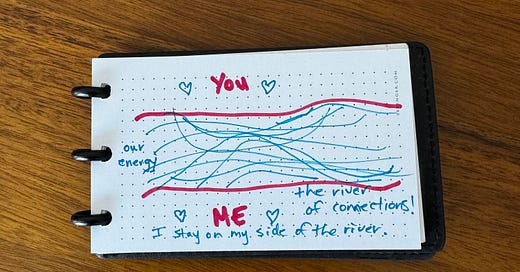 YOU
our
energy
the river
of connections!
ME
I stay on my side of the river.